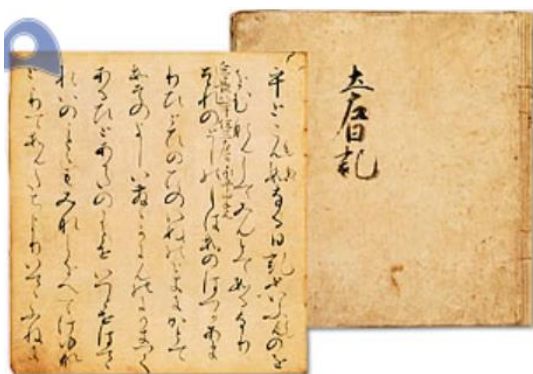 土左日記
をとこもすなる日記といふものを
をむなもしてみんとてするなり
それのとしのしはすのはつかあま
りひとひのひのいぬのときにかとて
そのよしいさゝかにものにかきつく
あるひとあかたのよとせいつとせはてゝ
れいのことゝもみなしをへて
とりてすむたちよりいてゝふねに